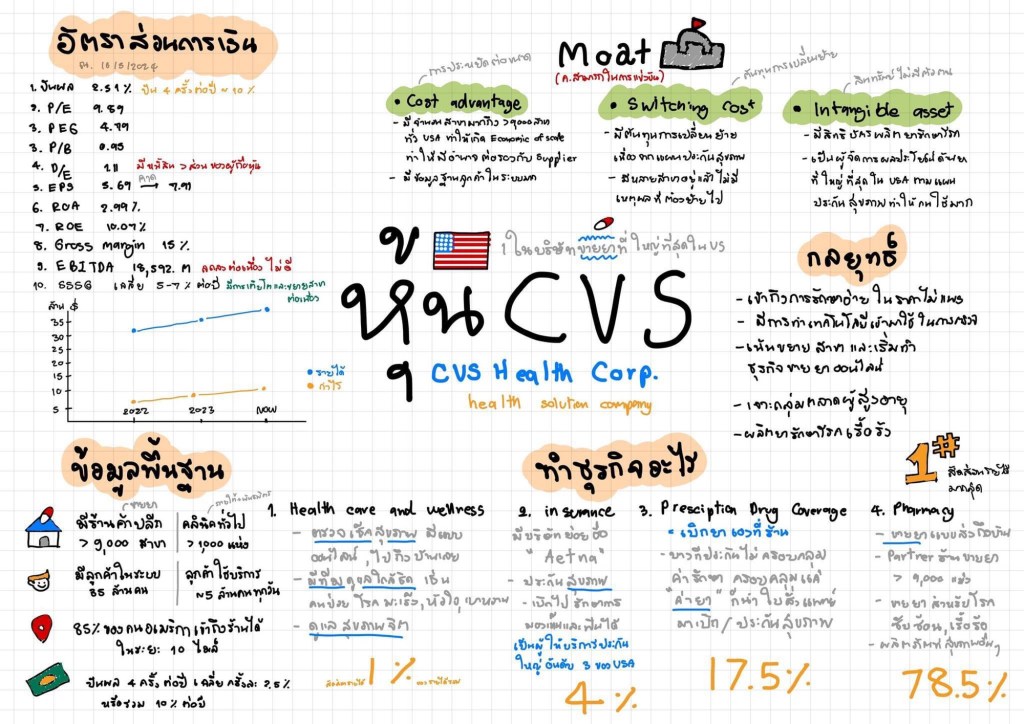 อัตราส่วนการเงิน
1. ปันผล 2.51% ปัน 4 ครั้งต่อปี ≈ 10%
2. P/E 9.89
3. PEG 4.79
3. P/B 0.95
4. D/E 211 มีหนี้สิน > ส่วนของผู้ถือหุ้น
5. EPS 5.69 คาด → 7.91
6. ROA 2.99%.
7. ROE 10.07%
8. Gross margin 15%.
9. EBITDA 18,592. M ลดลงต่อเนื่อง ไม่ดี
10. SSSG เฉลี่ย 5-7% ต่อปี มีการเติบโตและขยายสาขา
ต่อเนื่อง
ล้าน $
35
30
25
20
15
10
5
2022 2023 NOW
รายได้
กำไร
Moat
(ค.สามารถในการแข่งขัน)
การประหยัดต่อขนาด
• Cost advantage
- มีจำนวนสาขามากถึง >9,000 สาขา
ทั่ว USA ทำให้เกิด Economic of scale
ทำให้มีอำนาจต่อรองกับ Supplier
- มีข้อมูลฐานลูกค้าในระบบมาก
ต้นทุนการเปลี่ยนย้าย
• Switching cost
- มีต้นทุนการเปลี่ยนย้าย
เนื่องจากแผนประกันสุขภาพ
- มีหลายสาขาอยู่แล้ว ไม่มี
เหตุผลที่ต้องย้ายไป
สินทรัพย์ไม่มีตัวตน
• Intangible asset
- มีสิทธิบัตรผลิตยารักษาโรค
- เป็นผู้จัดการผลประโยชน์ด้านยา
ที่ใหญ่ที่สุดใน USA ตามแผน
ประกันสุขภาพทำให้คนใช้มาก
1 ในบริษัทขายยาที่ใหญ่ที่สุดใน US
หุ้น CVS
CVS Health Corp.
health solution company
กลยุทธ์
- เข้าถึงการรักษาง่าย ในราคาไม่แพง
- มีการทำเทคโนโลยีเข้ามาใช้ในการตรวจ
- เน้นขยายสาขา และเริ่มทำ
ธุรกิจขายยาออนไลน์
- เจาะกลุ่มตลาดผู้สูงอายุ
- ผลิตยารักษาโรคเรื้อรัง
ข้อมูลพื้นฐาน
ขายยา
มีร้านค้าปลีก
> 9,000 สาขา
คลินิกทั่วไป
> 1,000 แห่ง
มีลูกค้าในระบบ
35 ล้านคน
ลูกค้าใช้บริการ
~5 ล้านคนทุกวัน
85% ของคนอเมริกาเข้าถึงร้านได้
ในระยะ 10 ไมล์
ปันผล 4 ครั้งต่อปี เฉลี่ยครั้งละ 2.5%
หรือรวม 10% ต่อปี
ทำธุรกิจอะไร
1. Health care and wellness
- ตรวจเช็คสุขภาพ มีแบบ
ออนไลน์, ไปถึงบ้านเลย
- มีทีมดูแลใกล้ชิด เช่น
คนป่วยโรคมะเร็ง, หัวใจ, เบาหวาน
- ดูแลสุขภาพจิต
1% ของรายได้รวม
2. insurance
- มีบริษัทย่อยชื่อ
"Aetna"
- ประกันสุขภาพ
- เบิกไปรักษาการ
มองเห็นและฟันได้
เป็นผู้ให้บริการประกัน
ใหญ่อันดับ 3 ของ USA
4%
3. Presciption Drug Coverage
• เบิกยาเองที่ร้าน
- บางทีประกันไม่ครอบคลุม
ค่ารักษา ครอบคลุมแค่
"ค่ายา" ก็นำใบสั่งแพทย์
มาเบิก / ประกันสุขภาพ
17.5%
1#
สัดส่วนรายได้
มากสุด
4. Pharmacy
- ขายยาแบบส่งถึงบ้าน
- Partner ร้านขายยา
> 9,000 แห่ง
- ขายยาสำหรับโรค
ซับซ้อน, เรื้อรัง
- ผลิตภัณฑ์สุขภาพอื่นๆ
78.5%